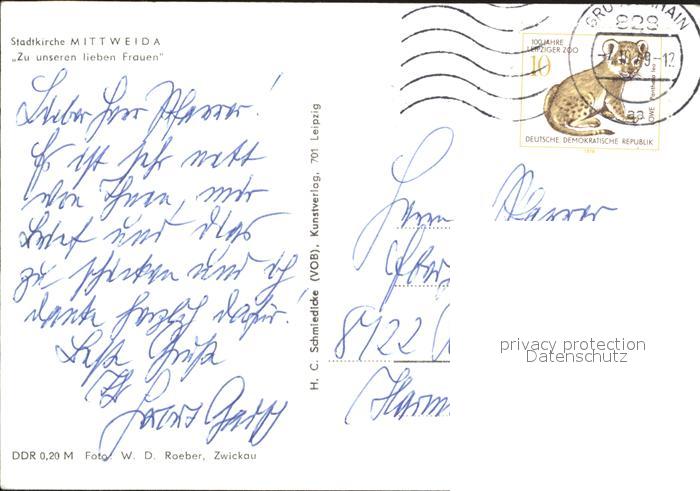 Stadtkirche MITTWEIDA
„Zu unseren lieben Frauen"
Lieber Herr Pfarrer!
Es ist sehr nett
von Ihnen, mir
Brief und dias
zu schicken und ich
danke herzlich dafür!
Beste Grüße
DDR 0,20 M Foto: W. D. Roeber, Zwickau
H. C. Schmiedicke (VOB), Kunstverlag, 701 Leipzig
828
100 JAHRE
LEIPZIGER ZOO
10
LÖWE Panthera leo
DEUTSCHE DEMOKRATISCHE REPUBLIK
1978
Herrn Pfarrer
8122
privacy protection
Datenschutz